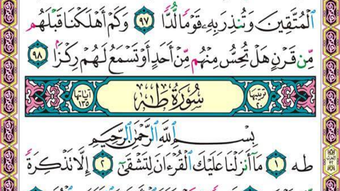 ٱلْمُتَّقِينَ وَتُنذِرَ بِهِۦ قَوْمًا لُّدًّا ٩٧ وَكَمْ أَهْلَكْنَا قَبْلَهُم
مِّن قَرْنٍ هَلْ تُحِسُّ مِنْهُم مِّنْ أَحَدٍ أَوْ تَسْمَعُ لَهُمْ رِكْزًۢا ٩٨
ترتيبها ٢٠ سُورَةُ طه آياتها ١٣٥
بِسْمِ ٱللَّهِ ٱلرَّحْمَٰنِ ٱلرَّحِيمِ
طه ١ مَآ أَنزَلْنَا عَلَيْكَ ٱلْقُرْءَانَ لِتَشْقَىٰٓ ٢ إِلَّا تَذْكِرَةً